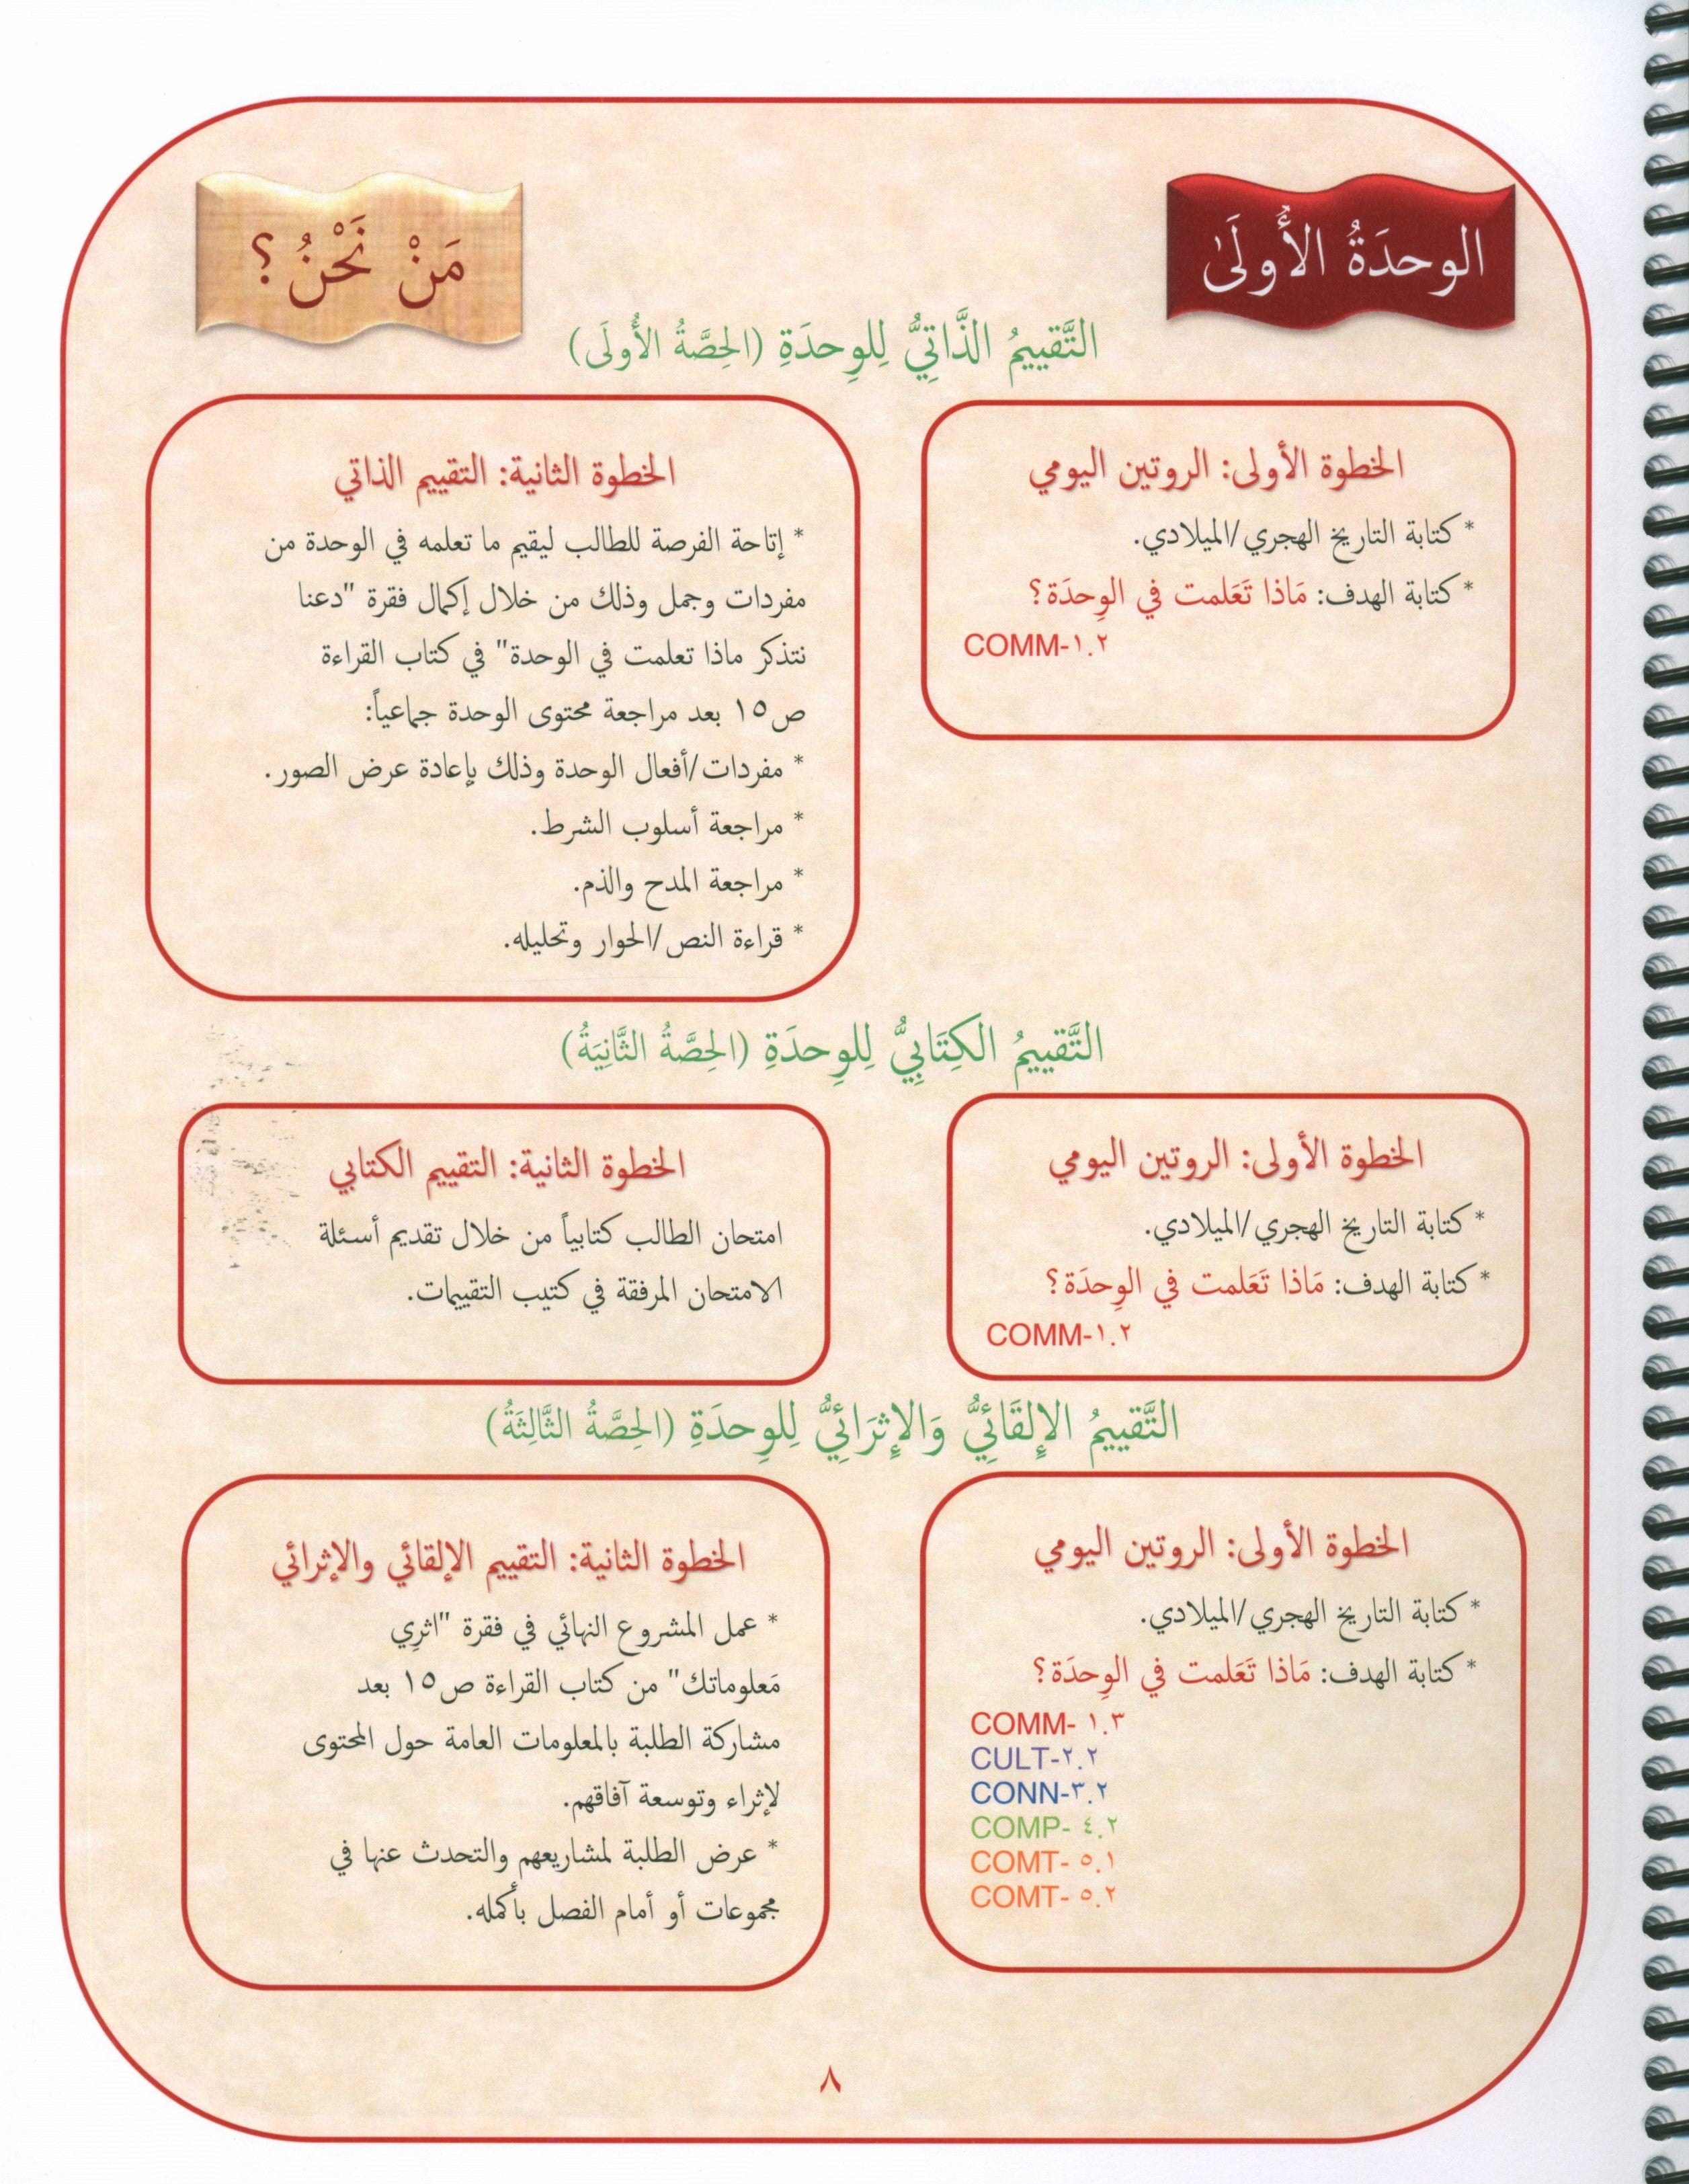 الوحدَةُ الأُولَىٰ
مَنْ نَحْنُ ؟
التَّقييمُ الذَّاتِيُّ لِلوِحدَةِ (الحِصَّةُ الأُولَى)
الخطوة الأولى: الروتين اليومي
* كتابة التاريخ الهجري/الميلادي.
* كتابة الهدف: مَاذا تَعَلمت في الوِحدَة؟
COMM-١.٢
الخطوة الثانية: التقييم الذاتي
* إتاحة الفرصة للطالب ليقيم ما تعلمه في الوحدة من
مفردات وجمل وذلك من خلال إكمال فقرة "دعنا
نتذكر ماذا تعلمت في الوحدة" في كتاب القراءة
ص١٥ بعد مراجعة محتوى الوحدة جماعياً:
* مفردات/أفعال الوحدة وذلك بإعادة عرض الصور.
* مراجعة أسلوب الشرط.
* مراجعة المدح والذم.
* قراءة النص/الحوار وتحليله.
التَّقييمُ الكِتَابِيُّ لِلوِحدَةِ (الحِصَّةُ الثَّانِيَةُ)
الخطوة الأولى: الروتين اليومي
* كتابة التاريخ الهجري/الميلادي.
* كتابة الهدف: مَاذا تَعَلمت في الوِحدَة؟
COMM-١.٢
الخطوة الثانية: التقييم الكتابي
امتحان الطالب كتابياً من خلال تقديم أسئلة
الامتحان المرفقة في كتيب التقييمات.
التَّقييمُ الإِلقَائِيُّ وَالإِثرَائِيُّ لِلوِحدَةِ (الحِصَّةُ الثَّالِثَةُ)
الخطوة الأولى: الروتين اليومي
* كتابة التاريخ الهجري/الميلادي.
* كتابة الهدف: مَاذا تَعَلمت في الوِحدَة؟
COMM- ١.٣
CULT-٢.٢
CONN-٣.٢
COMP- ٤.٢
COMT- ٥.١
COMT- ٥.٢
الخطوة الثانية: التقييم الإلقائي والإثرائي
* عمل المشروع النهائي في فقرة "اثرِي
مَعلوماتك" من كتاب القراءة ص١٥ بعد
مشاركة الطلبة بالمعلومات العامة حول المحتوى
لإثراء وتوسعة آفاقهم.
* عرض الطلبة لمشاريعهم والتحدث عنها في
مجموعات أو أمام الفصل بأكمله.
٨